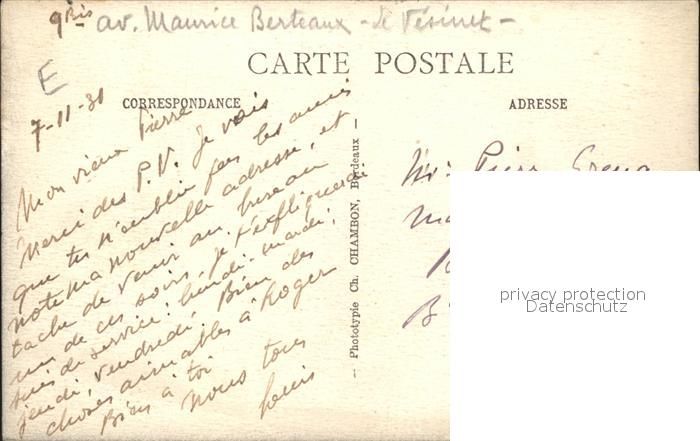 9bis av. Maurice Berteaux - Le Vésinet -
CARTE POSTALE
E
CORRESPONDANCE
ADRESSE
7-11-31
Mon vieux Pierre
Merci des P.V. Je vois
que tu n'oublie pas les amis
note ma nouvelle adresse, et
tache de venir au bureau
un de ces soirs. Je t'expliquerai
suis de service: lundi. mardi.
jeudi, vendredi. Bien des
choses aimables à Roger
Bien à toi
nous tous
Louis
— Phototypie Ch. CHAMBON, Bordeaux —
Mr
privacy protection
Datenschutz